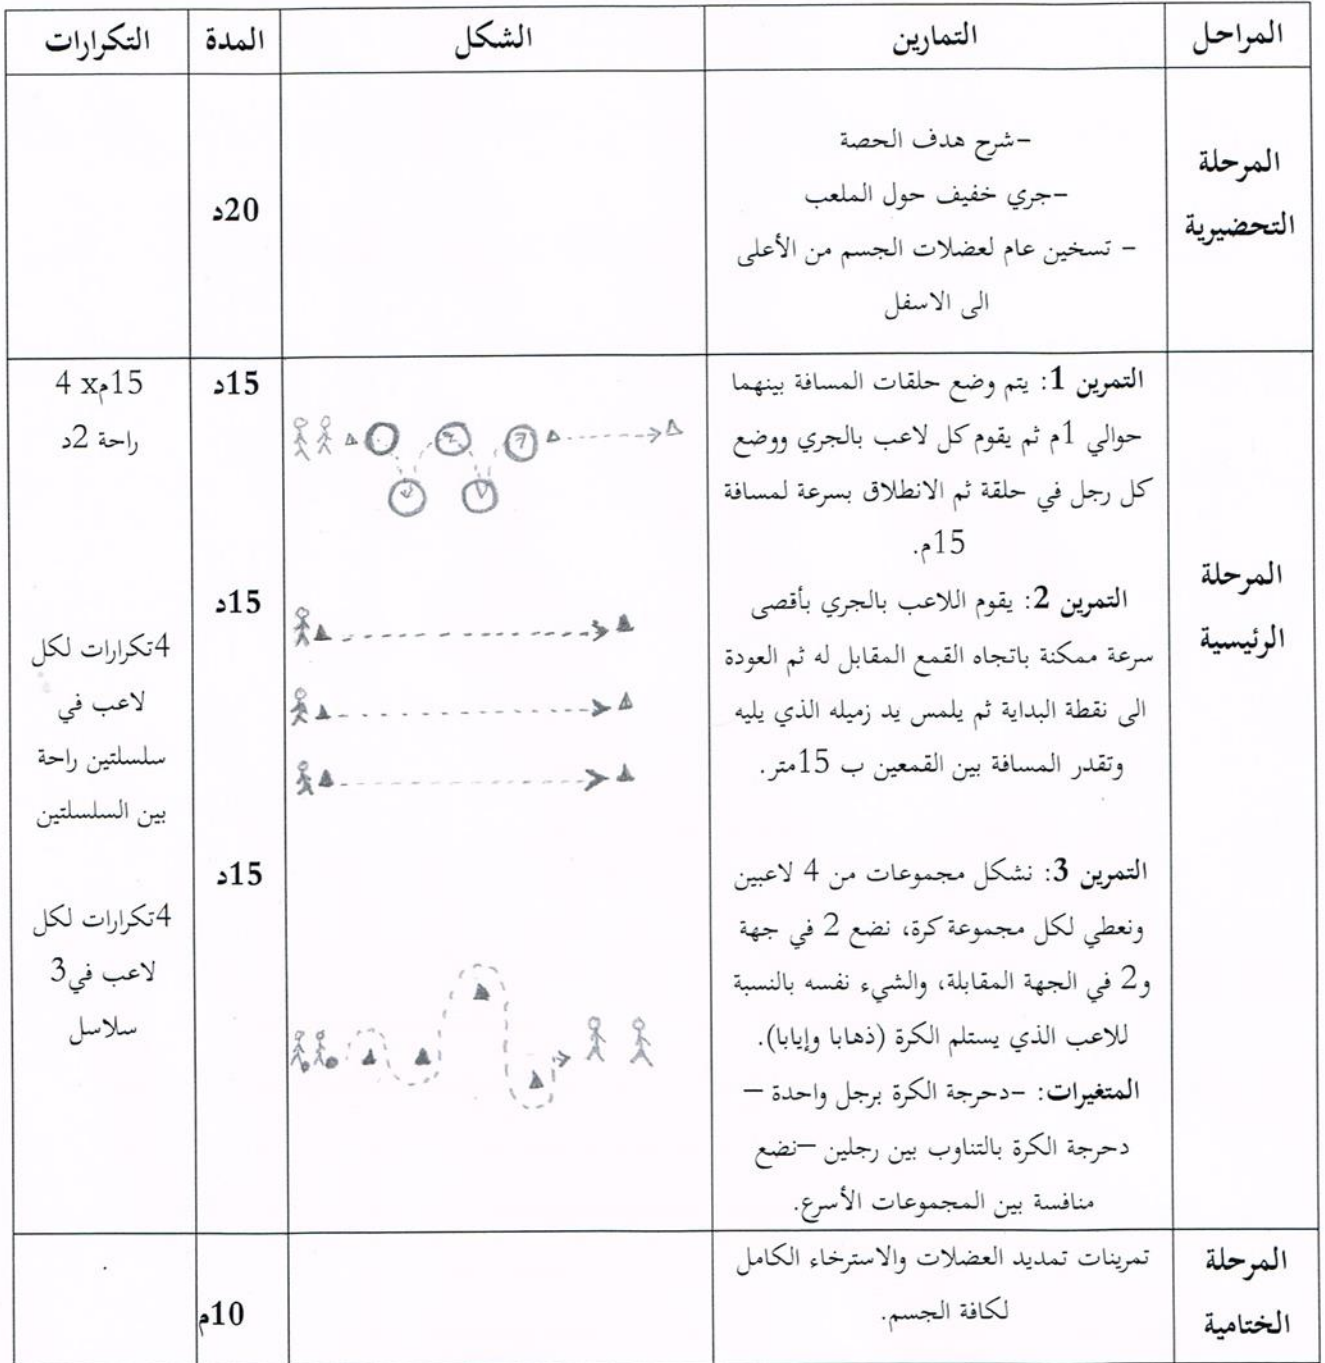 المراحل التمارين الشكل المدة التكرارات
المرحلة
التحضيرية
-شرح هدف الحصة
-جري خفيف حول الملعب
- تسخين عام لعضلات الجسم من الأعلى
الى الاسفل
20د
المرحلة
الرئيسية
التمرين 1: يتم وضع حلقات المسافة بينهما
حوالي 1م ثم يقوم كل لاعب بالجري ووضع
كل رجل في حلقة ثم الانطلاق بسرعة لمسافة
15م.
15د
15مx 4
راحة 2د
التمرين 2: يقوم اللاعب بالجري بأقصى
سرعة ممكنة باتجاه القمع المقابل له ثم العودة
الى نقطة البداية ثم يلمس يد زميله الذي يليه
وتقدر المسافة بين القمعين ب 15متر.
15د
4تكرارات لكل
لاعب في
سلسلتين راحة
بين السلسلتين
التمرين 3: نشكل مجموعات من 4 لاعبين
ونعطي لكل مجموعة كرة، نضع 2 في جهة
و2 في الجهة المقابلة، والشيء نفسه بالنسبة
للاعب الذي يستلم الكرة (ذهابا وإيابا).
المتغيرات: -دحرجة الكرة برجل واحدة –
دحرجة الكرة بالتناوب بين رجلين –نضع
منافسة بين المجموعات الأسرع.
15د
4تكرارات لكل
لاعب في3
سلاسل
المرحلة
الختامية
تمرينات تمديد العضلات والاسترخاء الكامل
لكافة الجسم.
10م